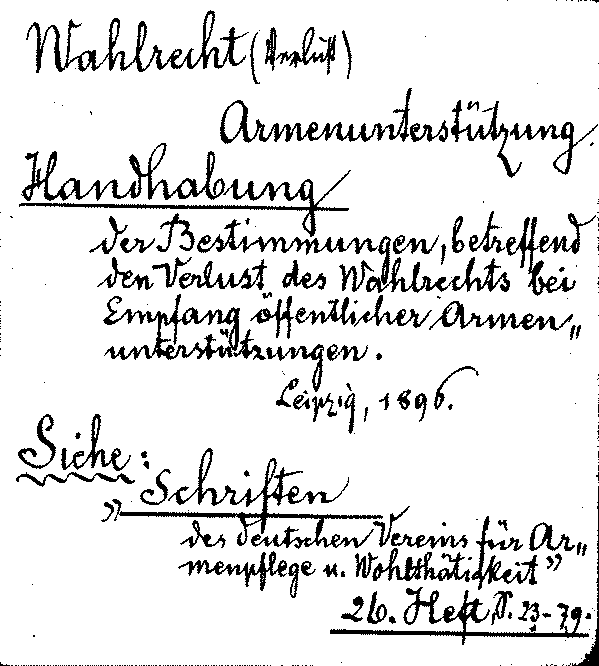 Wahlrecht (Verlust)
Armenunterstützung.
Handhabung
der Bestimmungen, betreffend
den Verlust des Wahlrechts bei
Empfang öffentlicher Armen„
unterstützungen.
Leipzig, 1896.
Siehe:
„Schriften
des deutschen Vereins für Ar„
menpflege u. Wohlthätigkeit”
26. Heft, S. 23-79.